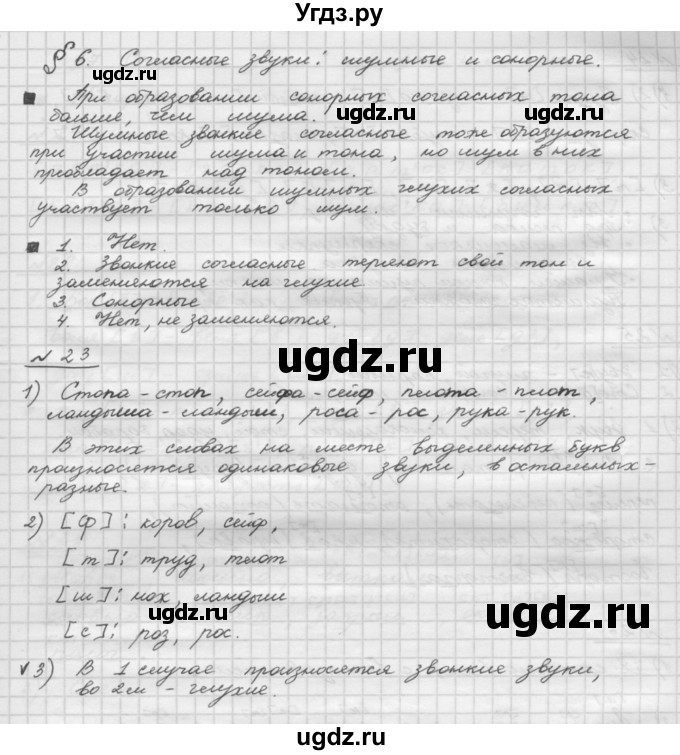 Угдз.ру
§ 6. Согласные звуки: шумные и сонорные.
При образовании сонорных согласных тона
больше, чем шума.
Шумные звонкие согласные тоже образуются
при участии шума и тона, но шум в них
преобладает над тоном.
В образовании шумных глухих согласных
участвует только шум.
1. Нет.
2. Звонкие согласные теряют свой тон и
заменяются на глухие
3. Сонорные
4. Нет, не заменяются.
ugdz.ru
№ 23
1) Стопа - стоп, сейфа - сейф, плота - плот,
ландыша - ландыш, роса - рос, рука - рук.
ugdz.ru
В этих словах на месте выделенных букв
произносятся одинаковые звуки, в остальных -
разные.
2) [ф]: коров, сейф,
[т]: труд, плот
ugdz.ru
[ш]: мох, ландыш
[с]: роз, рос.
ugdz.ru
3) В 1 случае произносятся звонкие звуки,
во 2м - глухие.
ugdz.ru